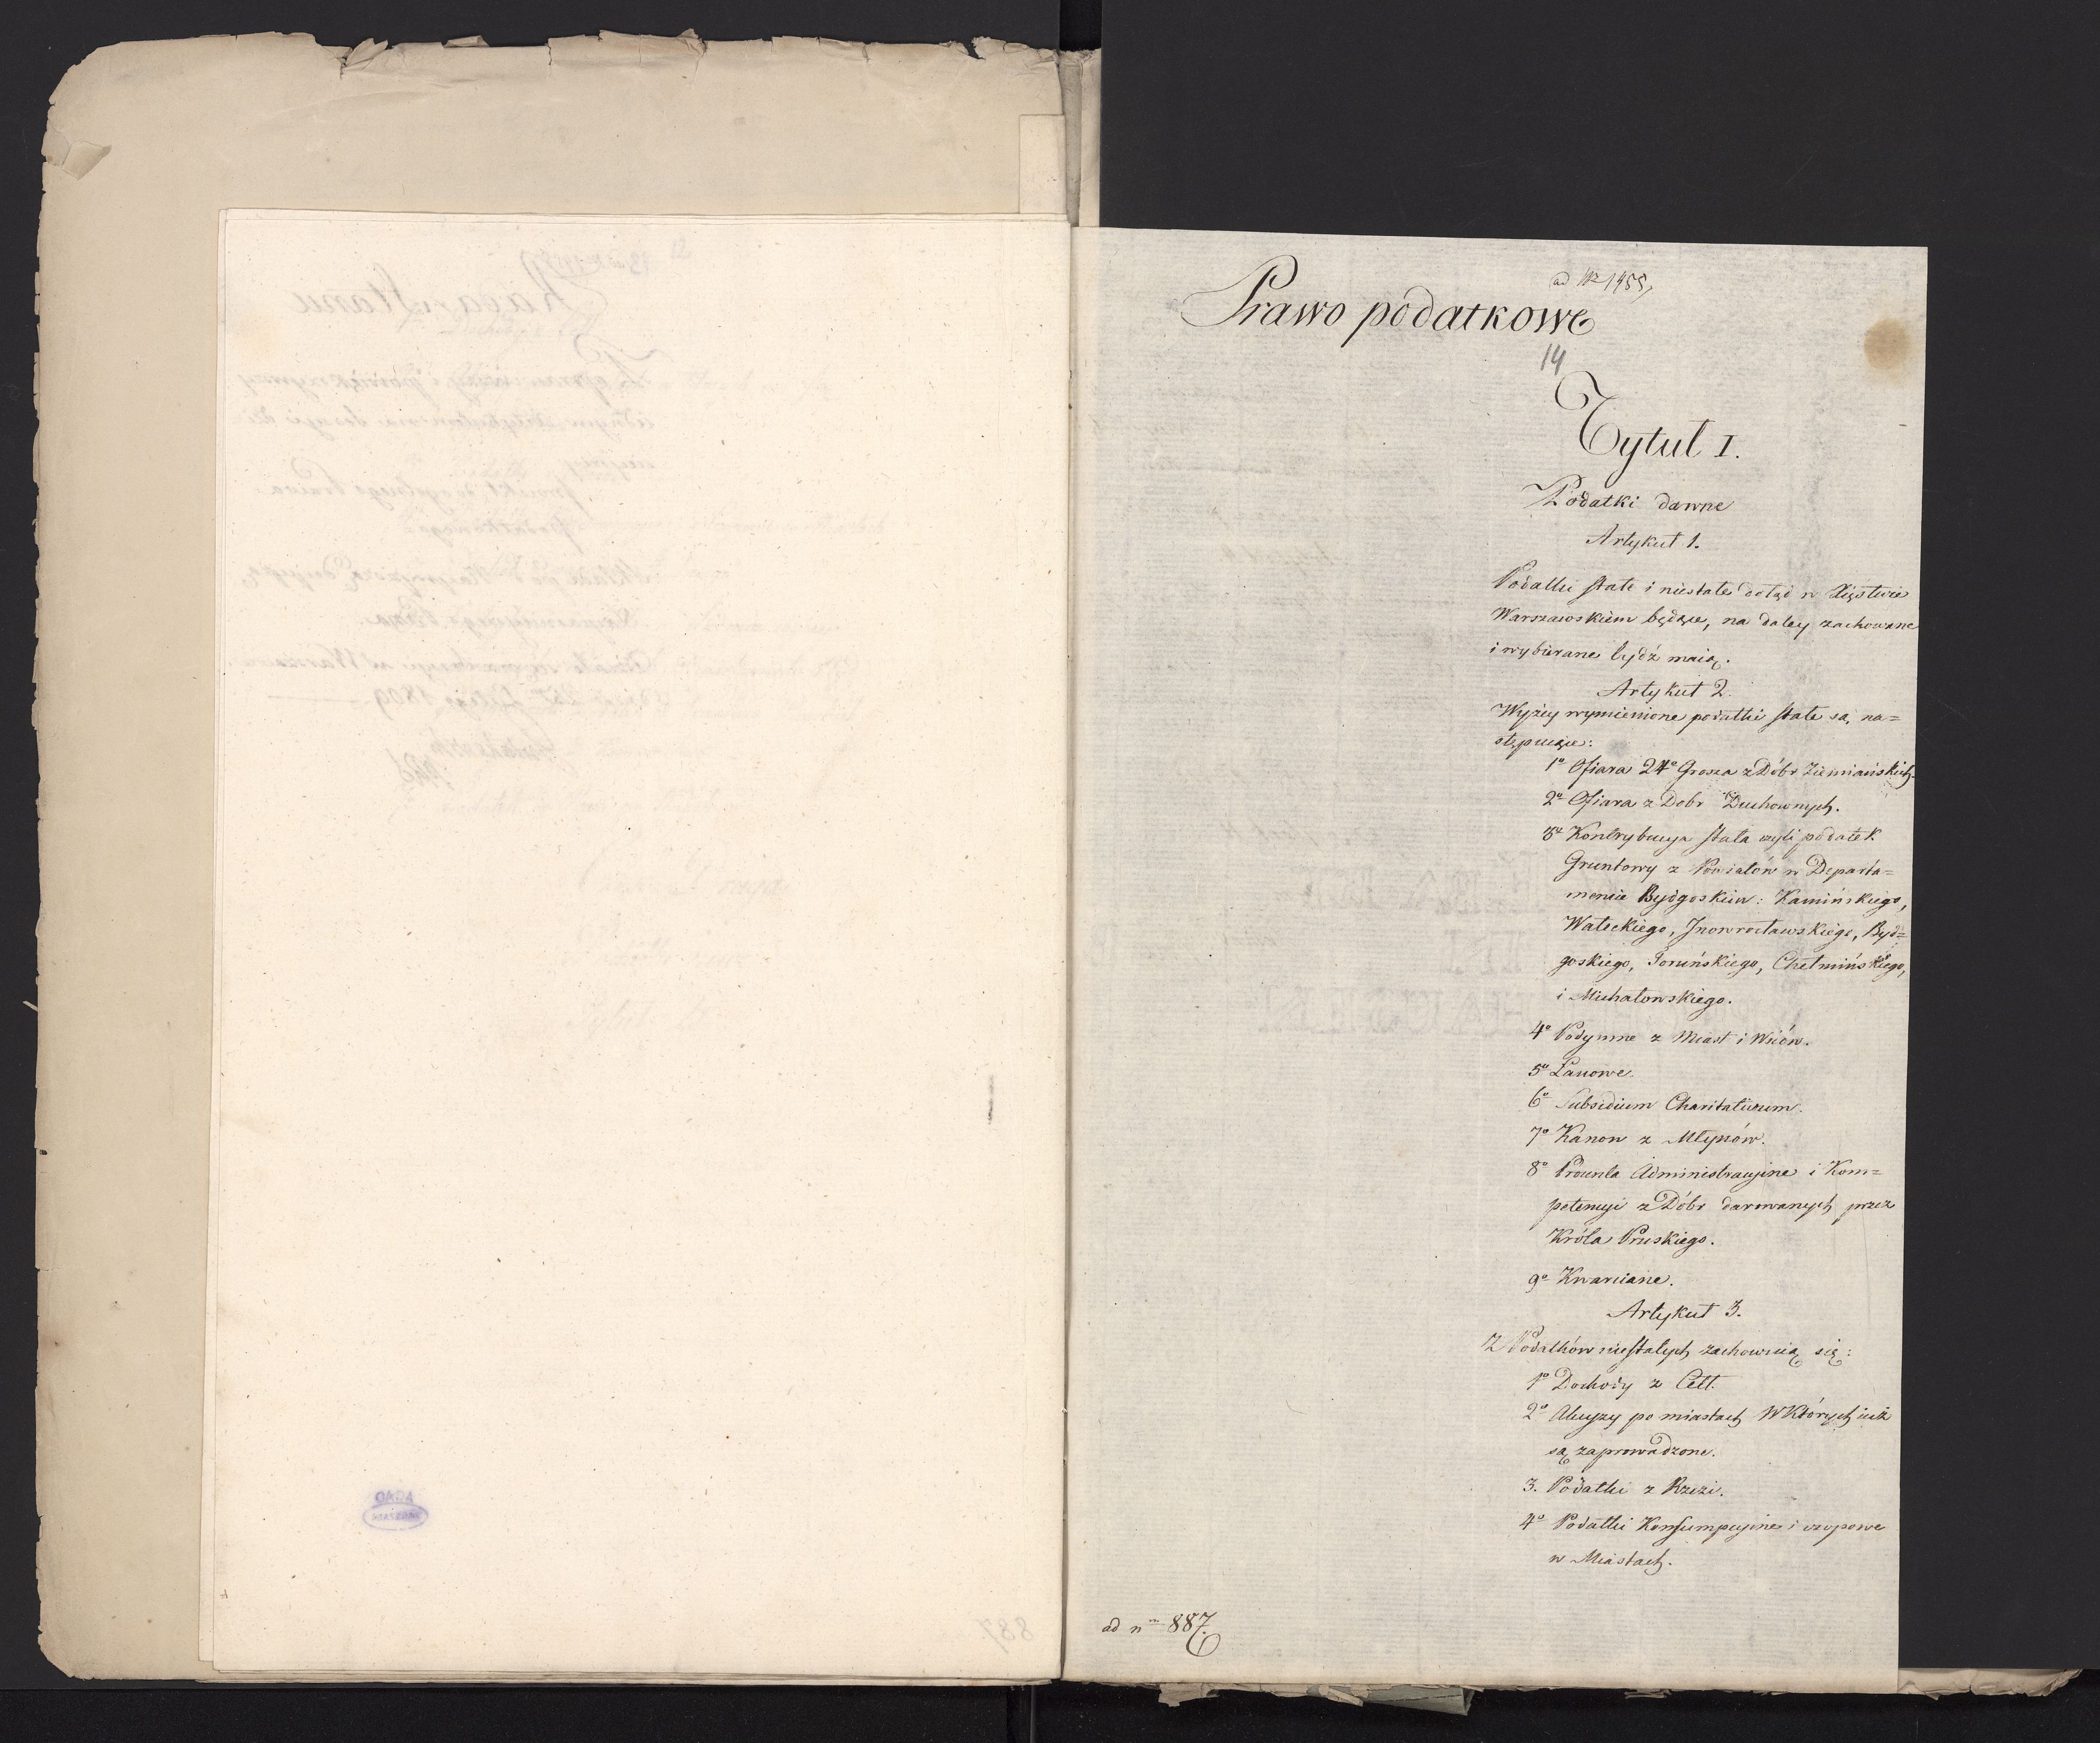 ad No 1455,
Prawo podatkowe
14
Tytuł I.
Podatki dawne
Artykuł 1.
Podatki stałe i niestałe dotąd w Xięstwie
Warszawskiem będące, na daley zachowane
i wybierane bydź maią.
Artykuł 2.
Wyżey wymienione podatki stałe są, na=
stępuiące:
1o Ofiara 24o Grosza z Dóbr Ziemiańskich.
2o Ofiara z Dobr Duchownych.
3o Kontrybucya stała czyli podatek
Gruntowy z Powiatów w Departa=
mencie Bydgoskim: Kamińskiego,
Wałeckiego, Inowrocławskiego, Byd=
goskiego, Toruńskiego, Chełmińskiego,
i Michałowskiego.
4o Podymne z Miast i Wsiów.
5o Łanowe.
6o Subsidium Charitativum.
7o Kanon z Młynów.
8o Procenta Administracyine i Kom=
petencyi z Dóbr darowanych przez
Króla Pruskiego.
9o Kwarciane.
Artykuł 3.
Z Podatków niestałych zachowuią się:
1o Dochody z Cełł.
2o Akcyzy po miastach w których iuż
są zaprowadzone.
3. Podatki z Rzezi.
4o Podatki Konsumpcyine i czopowe
w Miastach.
ad nm 887.